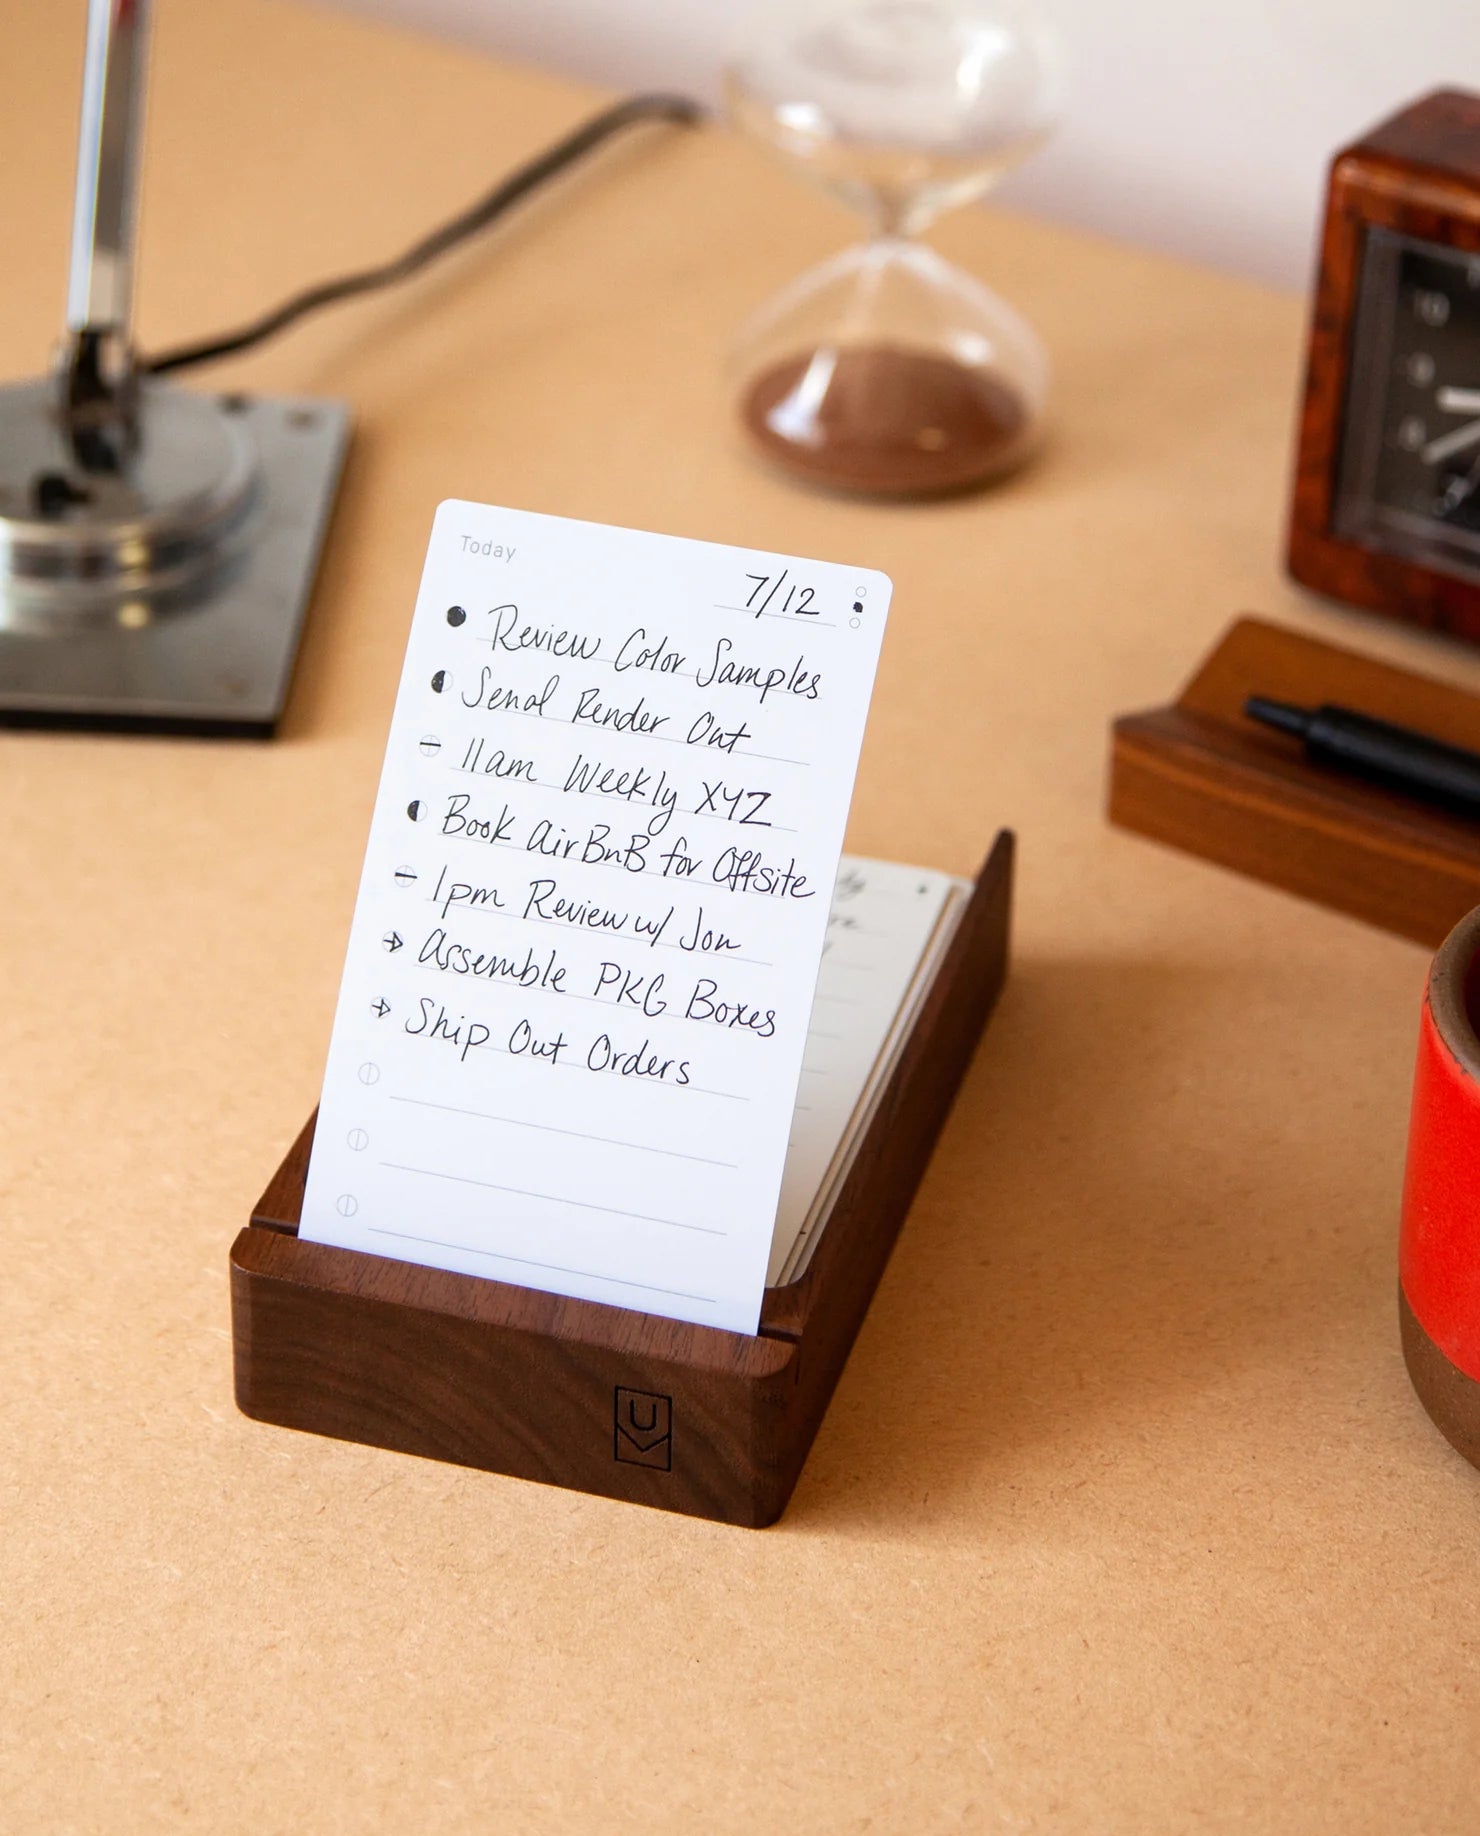 Today
7/12
Review Color Samples
Send Render Out
11am Weekly XYZ
Book AirBnB for Offsite
1pm Review w/ Jon
Assemble PKG Boxes
Ship Out Orders
U
10
9
8